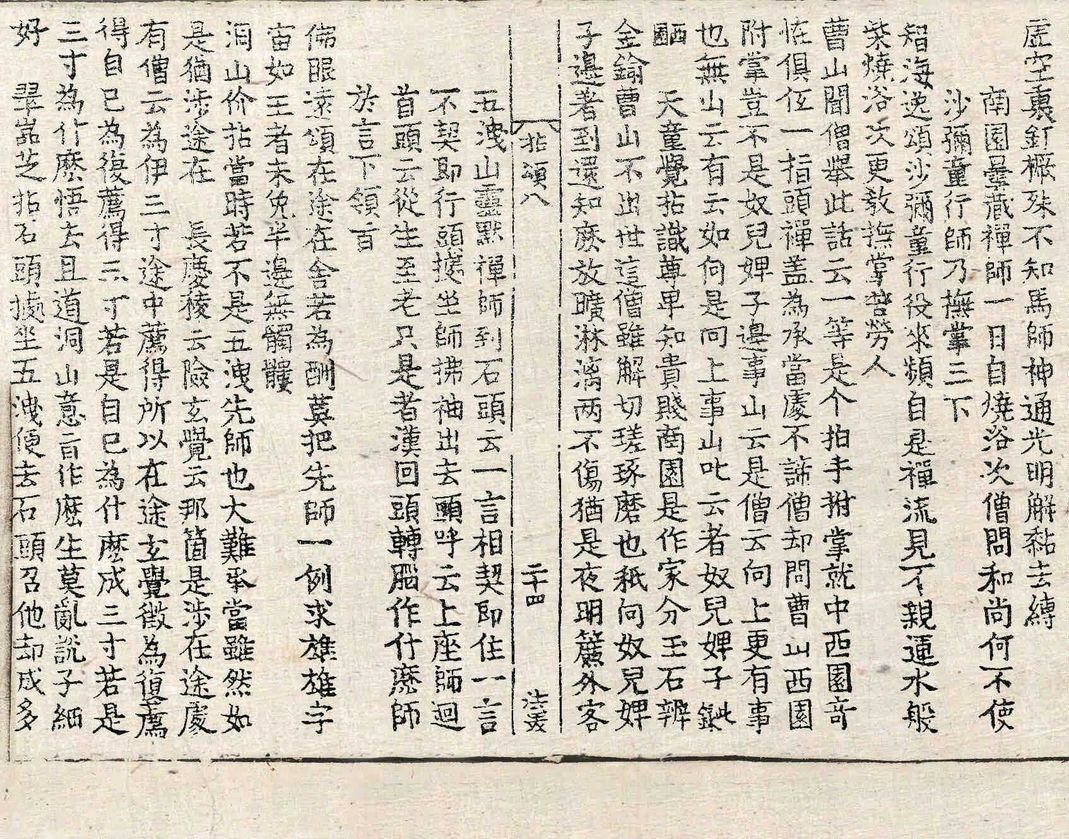 虛空裏釘橛殊不知馬師神通光明解黏去縛
南園曇藏禪師一日自燒浴次僧問和尚何不使
沙彌童行師乃撫掌三下
智海逸頌沙彌童行役來頻自是禪流見不親運水般
柴燒浴次更教撫掌苦勞人
曹山聞僧舉此話云一等是个拍手拊掌就中西園奇
恠俱伍一指頭禪盖為承當處不諦僧却問曹山西園
附掌豈不是奴兒婢子邊事山云是僧云向上更有事
也無山云有云如何是向上事山叱云者奴兒婢子
西園 天童覺拈識尊卑知貴賤南園是作家分玉石辨
金鍮曹山不出世這僧雖解切瑳琢磨也秖向奴兒婢
子邊著到還知麽放曠淋漓两不傷猶是夜明簾外客
拈頌八 二十四
五洩山靈默禪師到石頭云一言相契即住一言
不契即行頭據坐師拂袖出去頭呼云上座師迴
首頭云從生至老只是者漢回頭轉腦作什麽師
於言下領旨
佛眼遠頌在途在舍若為酬莫把先師一例求雄雄宇
宙如王者未免半邊無髑髏
洞山价拈當時若不是五洩先師也大難承當雖然如
是猶涉途在 長慶稜云險玄覺云那箇是涉在途處
有僧云為伊三寸途中薦得所以在途玄覺徵為復薦
得自己為復薦得三寸若是自己為什麽成三寸若是
三寸為什麽悟去且道洞山意旨作麽生莫亂說子細
好 翠嵓芝拈石頭據坐五洩便去石頭召他却成多